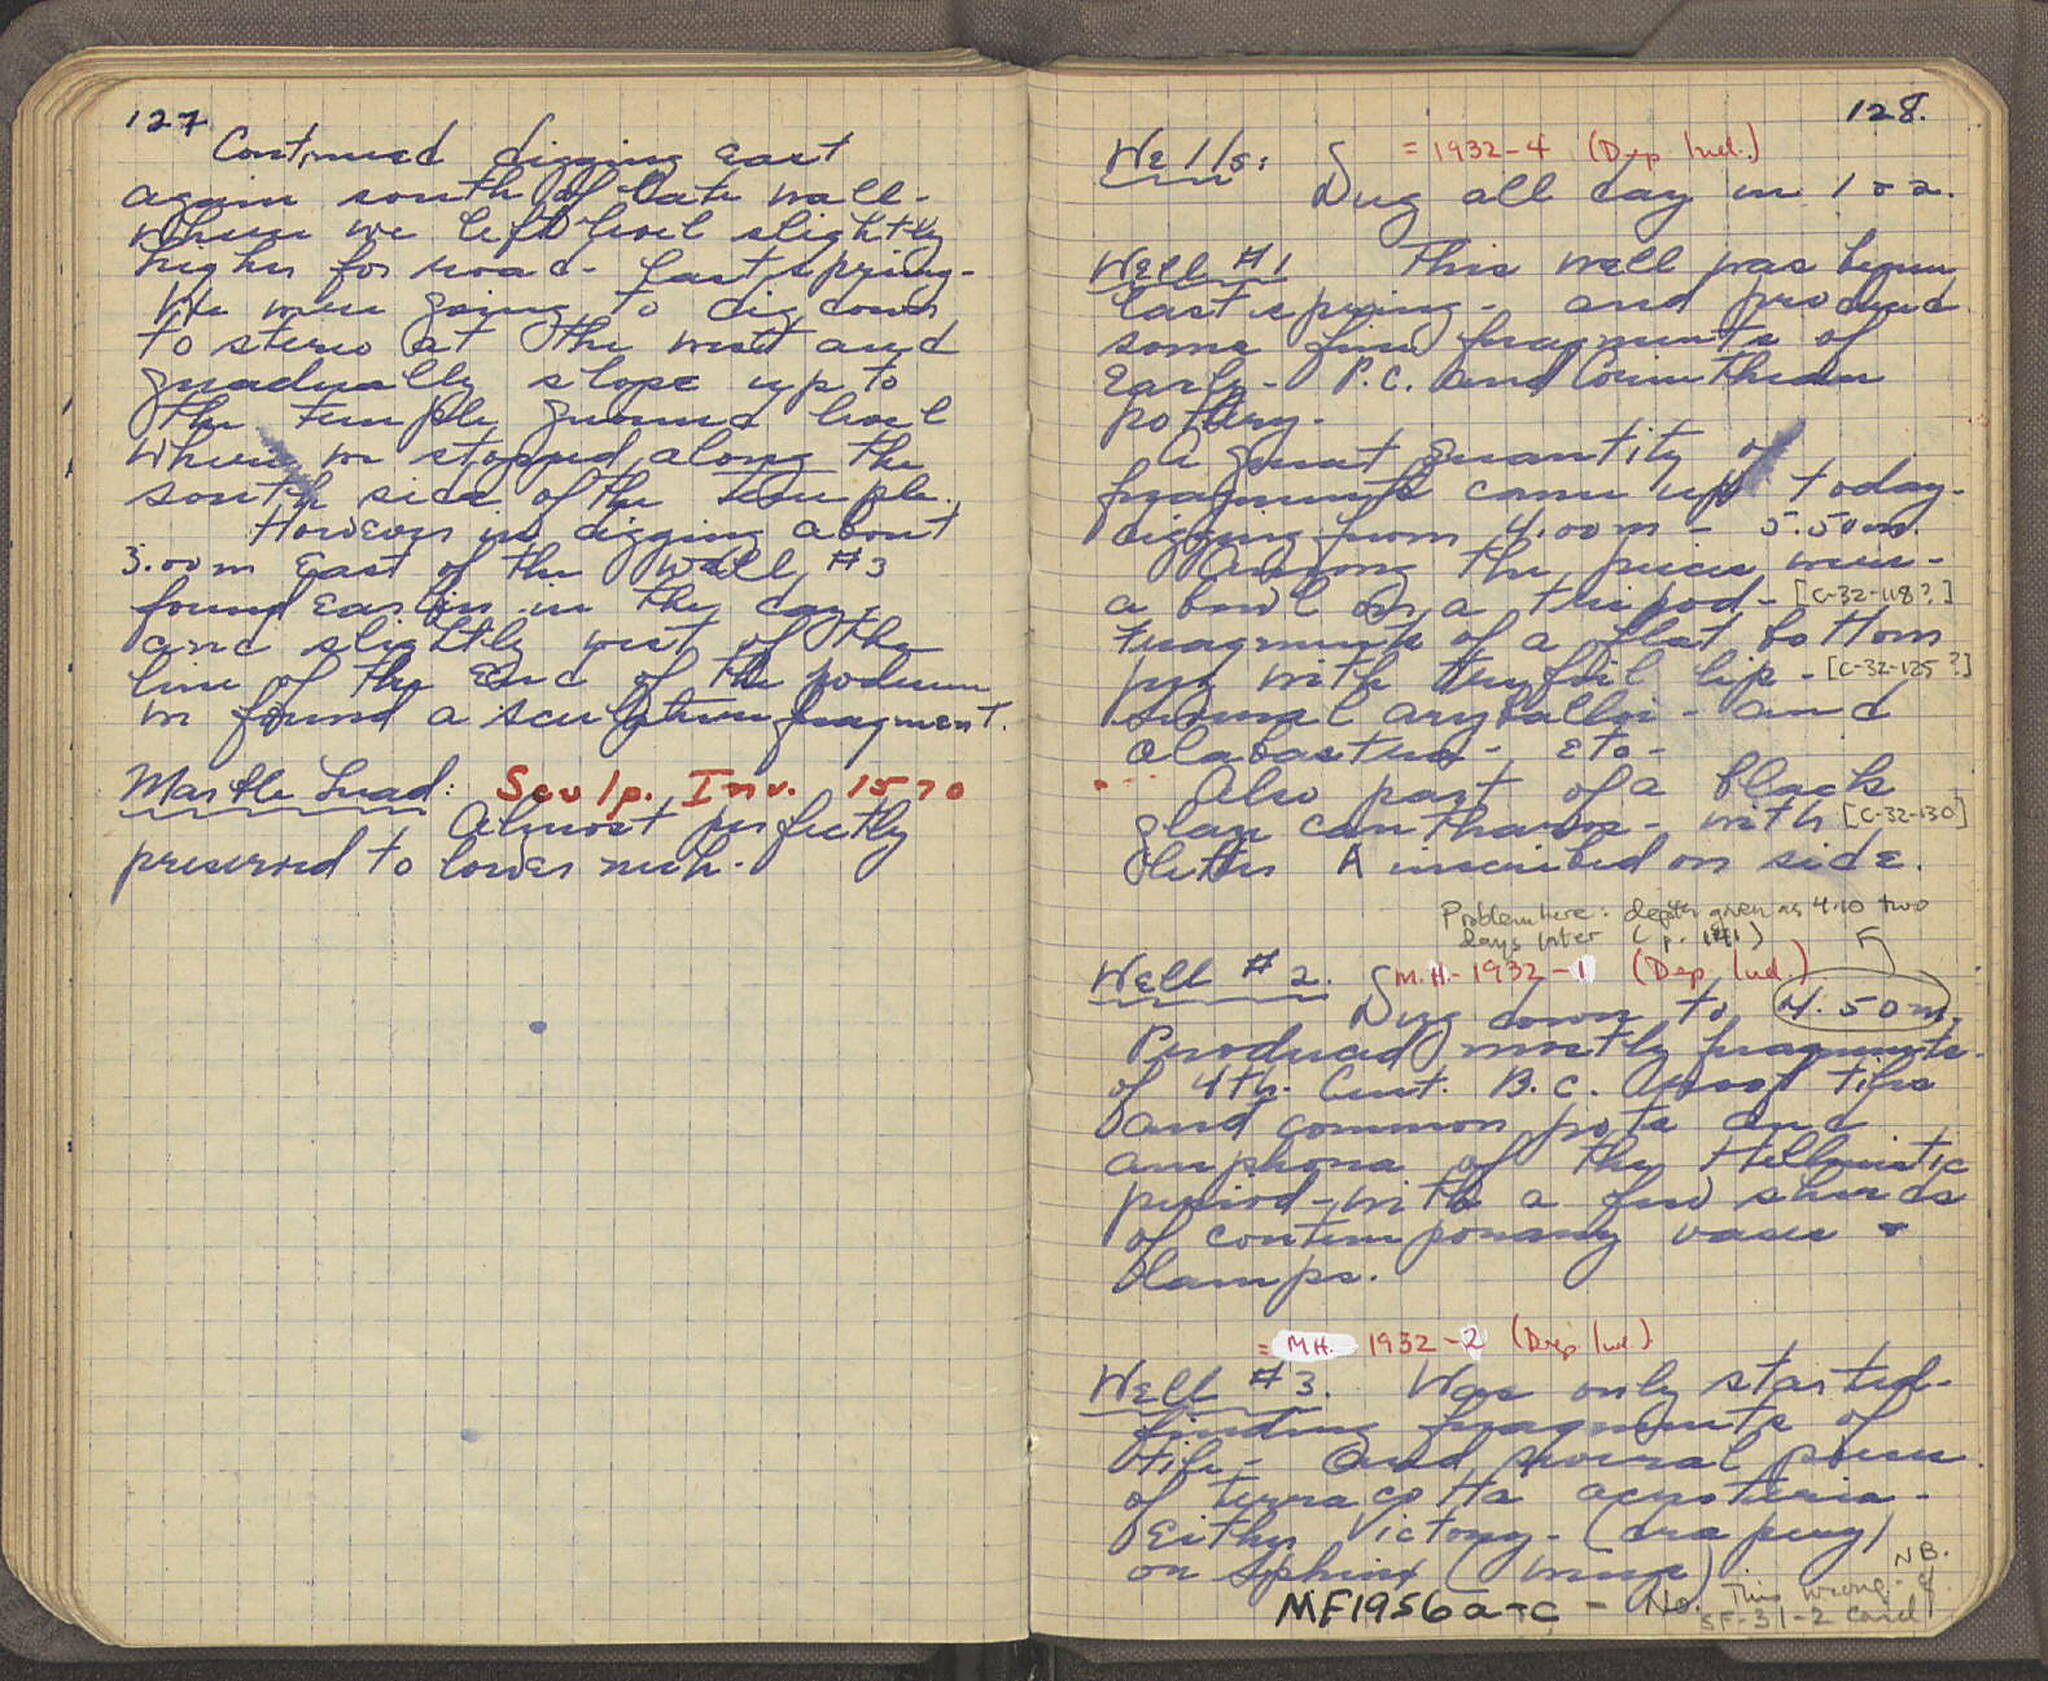 127
Continued digging east
again south of late wall -
where we left level slightly
higher for road - last spring -
We were going to dig down
to stereo at the west and
gradually slope up to
the temple ground level
where we stopped along the
south side of the temple.
However in digging about
3.00 m East of the Well #3
found earlier in the day,
and slightly west of the
line of the end of the podium
we found a sculpture fragment.
Marble head: Sculp. Inv. 1570
Almost perfectly
preserved to lower neck.
128.
Wells: = 1932-4 (Dep. Ind.)
Dug all day in 1 & 2.
Well #1 This well was begun
last spring - and produced
some fine fragments of
Early - P.C. and Corinthian
pottery.
A great quantity of
fragments came up today -
digging from 4.00 m - 5.50 m.
Among the pieces were -
a bowl on a tripod - [C-32-118?]
fragments of a flat bottom
jug with trefoil lip - [C-32-125?]
several aryballoi - and
alabastra - etc -
Also part of a black
glaze cantharos - with [C-32-130]
letter A inscribed on side.
Problem here: depth given as 4.10 two
days later (p. 141)
Well #2. M.H.- 1932-1 (Dep. Ind.)
Dug down to 4.50 m.
Produced mostly fragments
of 4th. Cent. B.C. roof tiles
and common pots and
amphora of the Hellenistic
period - with a few sherds
of contemporary vases &
lamps.
= M.H. 1932-2 (Dep Ind.)
Well #3. Was only started -
finding fragments of
tile - and several pieces
of terra cotta acroteria -
Either Victory - (drapery)
or sphinx (wings)
MF1956a-c - No. This wrong. NB. cf.
SF-31-2 card